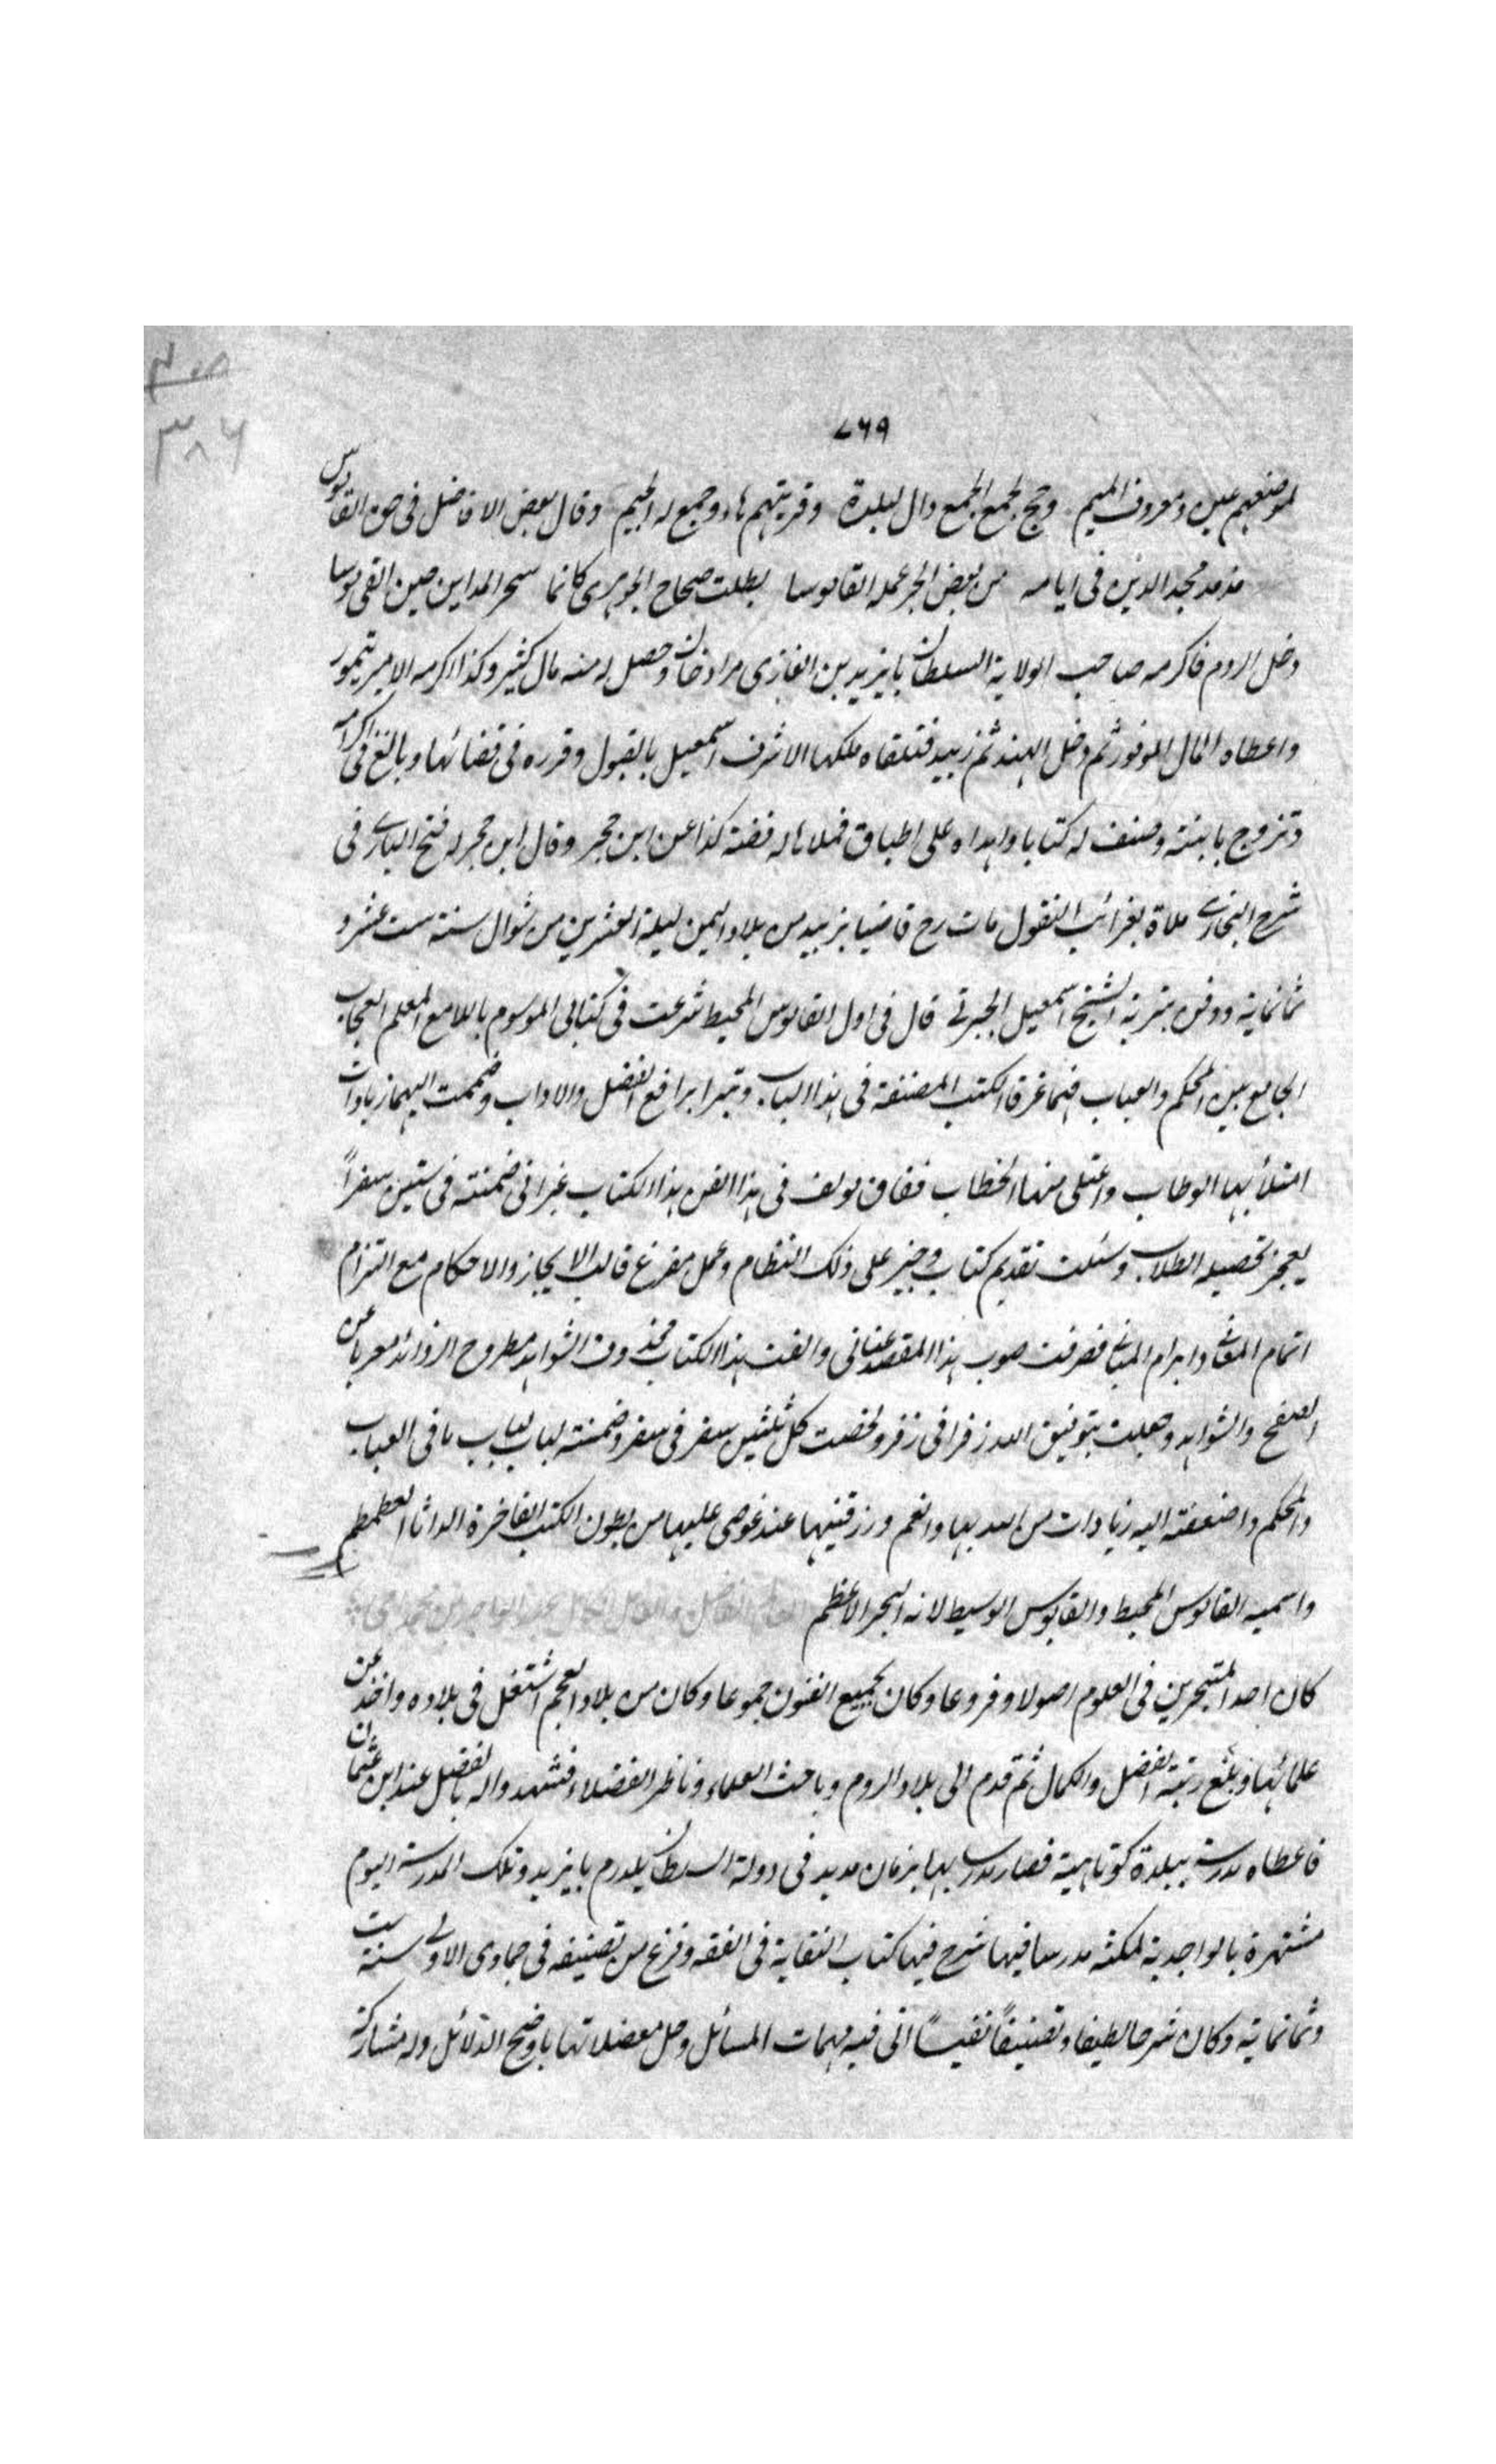 صـ
٣٨٦
٧٦٩
لموضعهم عين ومعروف الميم وجج لجمع الجمع دال لبلدة وقريتهم هاء وجميع له الجيم وقال بعض الافاضل في حق القاموس
مذ مد مجد الدين في ايامه من بعض ابحر علمه القاموسا بطلت صحاح الجوهري كانما سحر المداين حين القى موسا
دخل الروم فاكرمه صاحب الولاية السلطان بايزيد بن الغازي مراد خان وحصل له منه مال كثير وكذا اكرمه الامير تيمور
واعطاه المال الموفور ثم دخل الهند ثم زبيد فتلقاه ملكها الاشرف اسمعيل بالقبول وقرره في قضائها وبالغ في اكرامه
وتزوج بابنته وصنف له كتابا واهداه على اطباق فملاها له فضة كذا عن ابن حجر وقال ابن حجر له فتح الباري في
شرح البخاري ملاه بغرائب النقول مات رح قاضيا بزبيد من بلاد اليمن ليلة العشرين من شوال سنة ست عشر و
ثمانماية ودفن بتربة الشيخ اسمعيل الجبرتي قال في اول القاموس المحيط شرعت في كتابي الموسوم باللامع المعلم العجاب
الجامع بين المحكم والعباب فهما غرتا الكتب المصنفة في هذا الباب ونيرا براقع الفضل والاداب وضممت اليهما زيادات
امتلأ بها الوطاب واعتلى منها الخطاب ففاق مولف في هذا الفن هذا الكتاب غير اني ضمنته في ستين سفراً
يعجز تحصيله الطلاب وسئلت تقديم كتاب وجيز على ذلك النظام وعمل مفرغ قالب الايجاز والاحكام مع التزام
اتمام المعاني وابرام المباني فصرفت صوب هذا المقصد عناني والفت هذا الكتاب محذوف الشواهد مطروح الزوائد معربا عن
الفصح والشوابد وجعلت بتوفيق الله زفرا في زفر ولخصت كل ثلثين سفر في سفر وضمنته لباب لباب ما في العباب
والمحكم واضفته اليه زيادات من الله بها وانعم ورزقنيها عند غوصي عليها من بطون الكتب الفاخرة الداماء الغطمطم
واسميه القاموس المحيط والقابوس الوسيط لانه البحر الاعظم العالم الفاضل والعامل الكامل عبد الواحد بن محمد
كان احد المتبحرين في العلوم اصولا وفروعا وكان لجميع الفنون جموعا وكان من بلاد العجم اشتغل في بلاده واخذ عن
علمائها وبلغ رتبة الفضل والكمال ثم قدم الى بلاد الروم وباحث العلماء وناظر الفضلاء فشهدوا له بالفضل عند ابن عثمان
فاعطاه مدرسة ببلدة كوتاهية فصار مدرسا بها بزمان مديد في دولة السلطان يلدرم بايزيد وتلك المدرسة اليوم
مشتهرة بالواجدية لمكثه مدرسا فيها شرح فيها كتاب النقاية في الفقه وفرغ من تصنيفه في جمادى الاولى سنة ست
وثمانماية وكان شرحا لطيفا وتصنيفاً نفيساً اتى فيه مهمات المسائل وحل معضلاتها باوضح الدلائل وله مشاركة